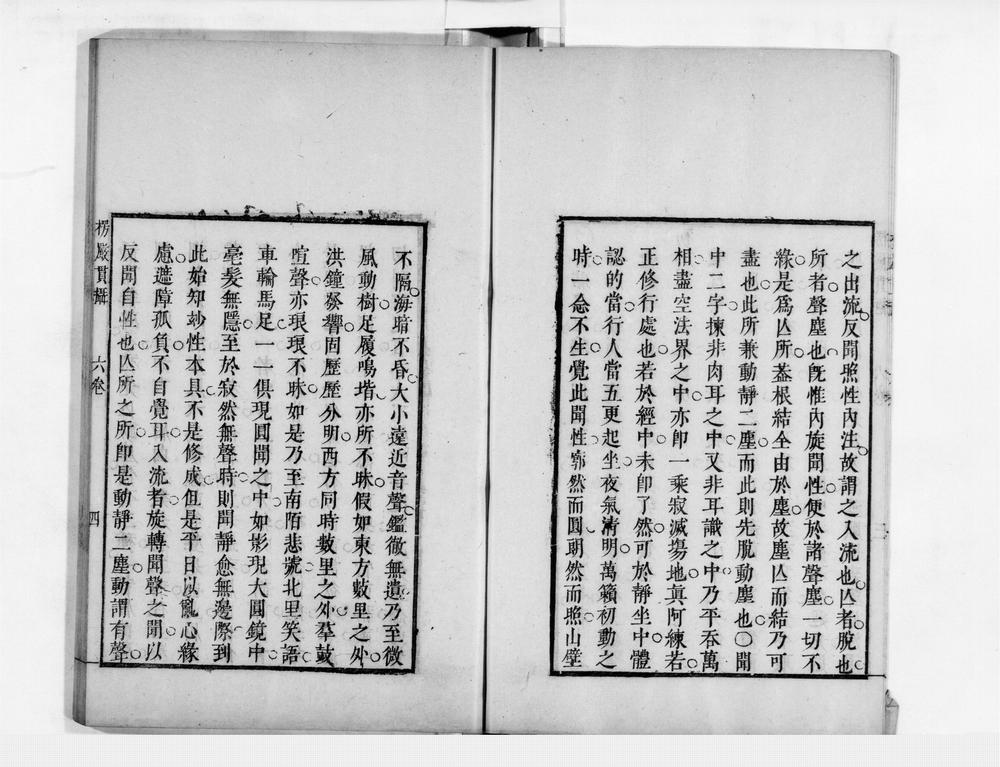 之出流反聞照性內注故謂之入流也亾者脫也
所者聲塵也旣惟內旋聞性便於諸聲塵一切不
緣是爲亾所葢根結全由於塵故塵亾而結乃可
盡也此所兼動靜二塵而此則先脫動塵也〇聞
中二字揀非肉耳之中又非耳識之中乃平吞萬
相盡空法界之中亦卽一乘寂滅塲地眞阿練若
正修行處也若於經中未卽了然可於靜坐中體
認的當行人當五更起坐夜氣清明萬籟初動之
時一念不生覺此聞性廓然而圓朗然而照山壁
不隔海暗不昏大小遠近音聲鑑徹無遺乃至微
風動樹足履鳴堦亦所不昧假如東方數里之外
洪鐘發響固歷歷分明西方同時數里之外羣鼓
喧聲亦琅琅不昧如是乃至南陌悲號北里笑語
車輪馬足一一俱現圓聞之中如影現大圓鏡中
毫髮無隱至於寂然無聲時則聞靜愈無邊際到
此始知玅性本具不是修成但是平日以亂心緣
慮遮障孤負不自覺耳入流者旋轉聞聲之聞以
反聞自性也亾所之所卽是動靜二塵動謂有聲
楞嚴貫攝 六卷 四